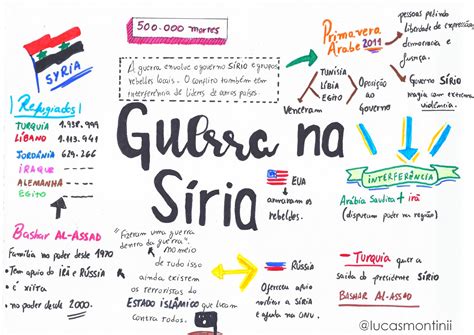 500.000 mortes
SYRIA
A guerra envolve o governo SÍRIO e grupos
rebeldes locais. O conflito também tem
interferência de líderes de outros países.
Primavera
Árabe 2011
pessoas pedindo
liberdade de expressão,
democracia e
justiça.
TUNÍSIA
LÍBIA
EGITO
Venceram
Oposição
ao
governo
Governo SÍRIO
reagiu com extrema
violência.
Refugiados
TURQUIA 1.938.999
LÍBANO 1.113.941
JORDÂNIA 629.266
IRAQUE
ALEMANHA
EGITO
Guerra na
Síria
EUA
armaram os
rebeldes.
INTERFERÊNCIA
Arábia Saudita + irã
(disputam poder na região)
Bashar AL-ASSAD
Família no poder desde 1970
• Tem apoio do IRÃ e RÚSSIA
• é xiita
• no poder desde 2000.
"Fizeram uma guerra
dentro da guerra".
no meio
de tudo isso
ainda existem
os terroristas do
ESTADO ISLÂMICO que lutam
contra todos.
Rússia
Ofereceu apoio
militar a SÍRIA
e ajuda na ONU.
Turquia quer a
saída do presidente SÍRIO
BASHAR AL-ASSAD
@lucasmontinii